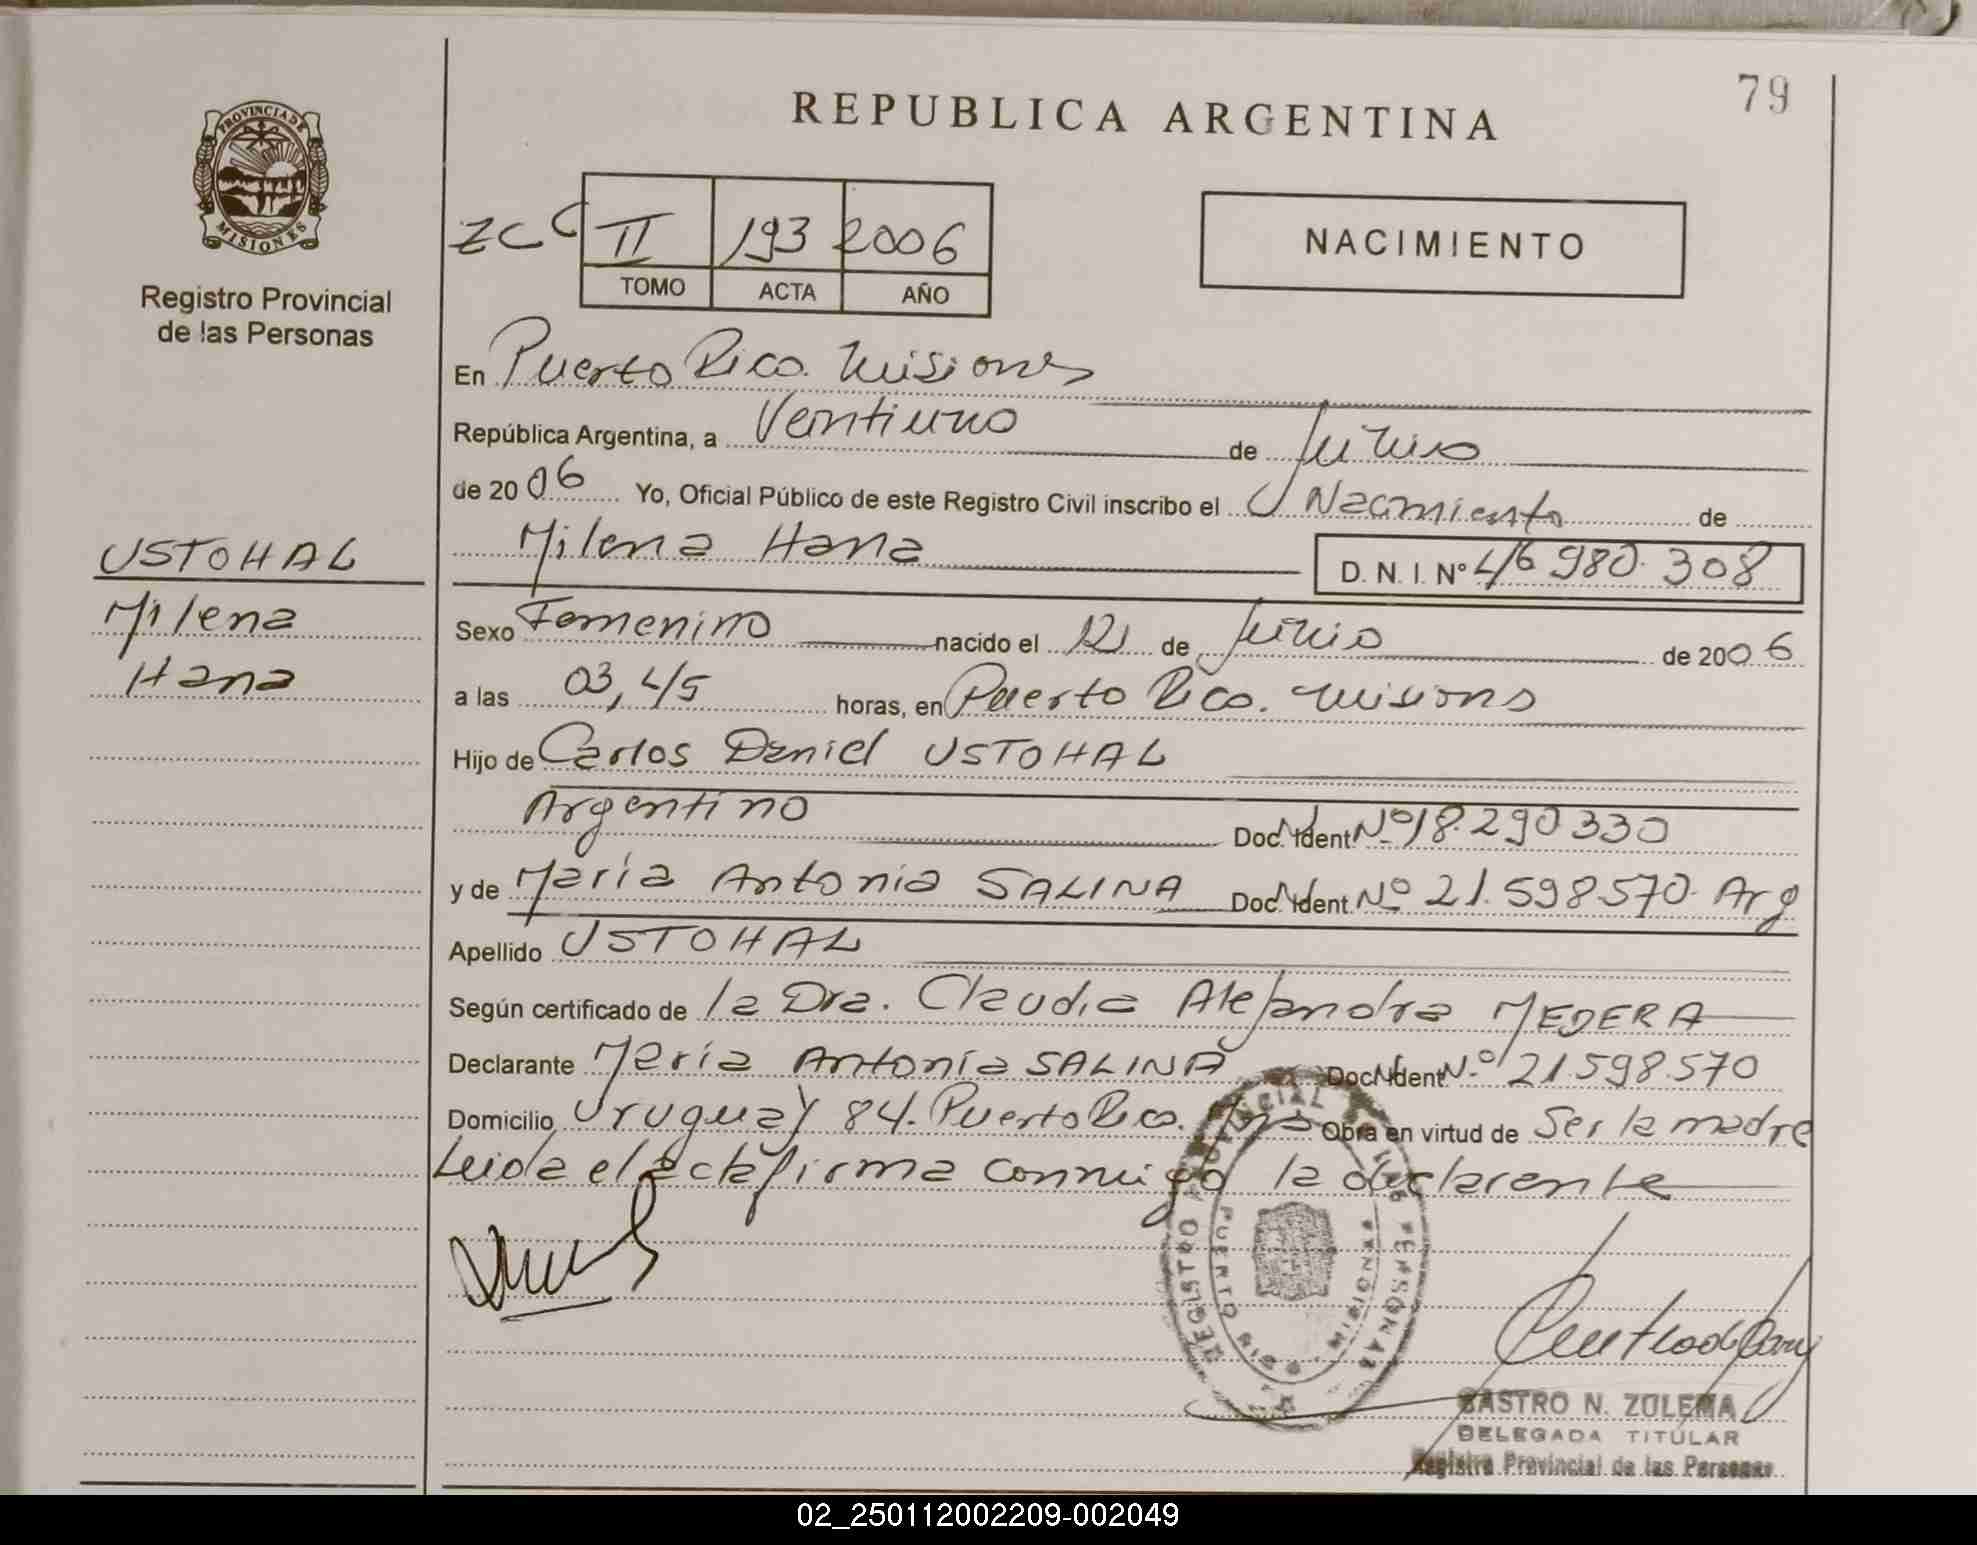 79
REPUBLICA ARGENTINA
PROVINCIA DE
MISIONES
Registro Provincial
de las Personas
II 193 2006
TOMO ACTA AÑO
NACIMIENTO
En Puerto Rico. Misiones
República Argentina, a Veintiuno de Junio
de 2006 Yo, Oficial Público de este Registro Civil inscribo el Nacimiento de
Milena Hana D.N.I. Nº 46980.308
USTOHAL
Milena
Hana
Sexo Femenino nacido el 12 de Junio de 2006
a las 03,45 horas, en Puerto Rico. Misiones
Hijo de Carlos Daniel USTOHAL
Argentino Doc. Ident Nº 18.290330
y de María Antonia SALINA Doc. Ident. Nº 21.598570. Arg
Apellido USTOHAL
Según certificado de la Dra. Claudia Alejandra MEDERA
Declarante María Antonia SALINA Doc. Ident Nº 21598.570
Domicilio Uruguay 84. Puerto Rico. Obra en virtud de Ser la madre
Leida el acta firma conmigo la declarante
REGISTRO PROVINCIAL LAS PERSONAS
PUERTO RICO MISIONES
CASTRO N. ZULEMA
DELEGADA TITULAR
Registro Provincial de las Personas
02_250112002209-002049